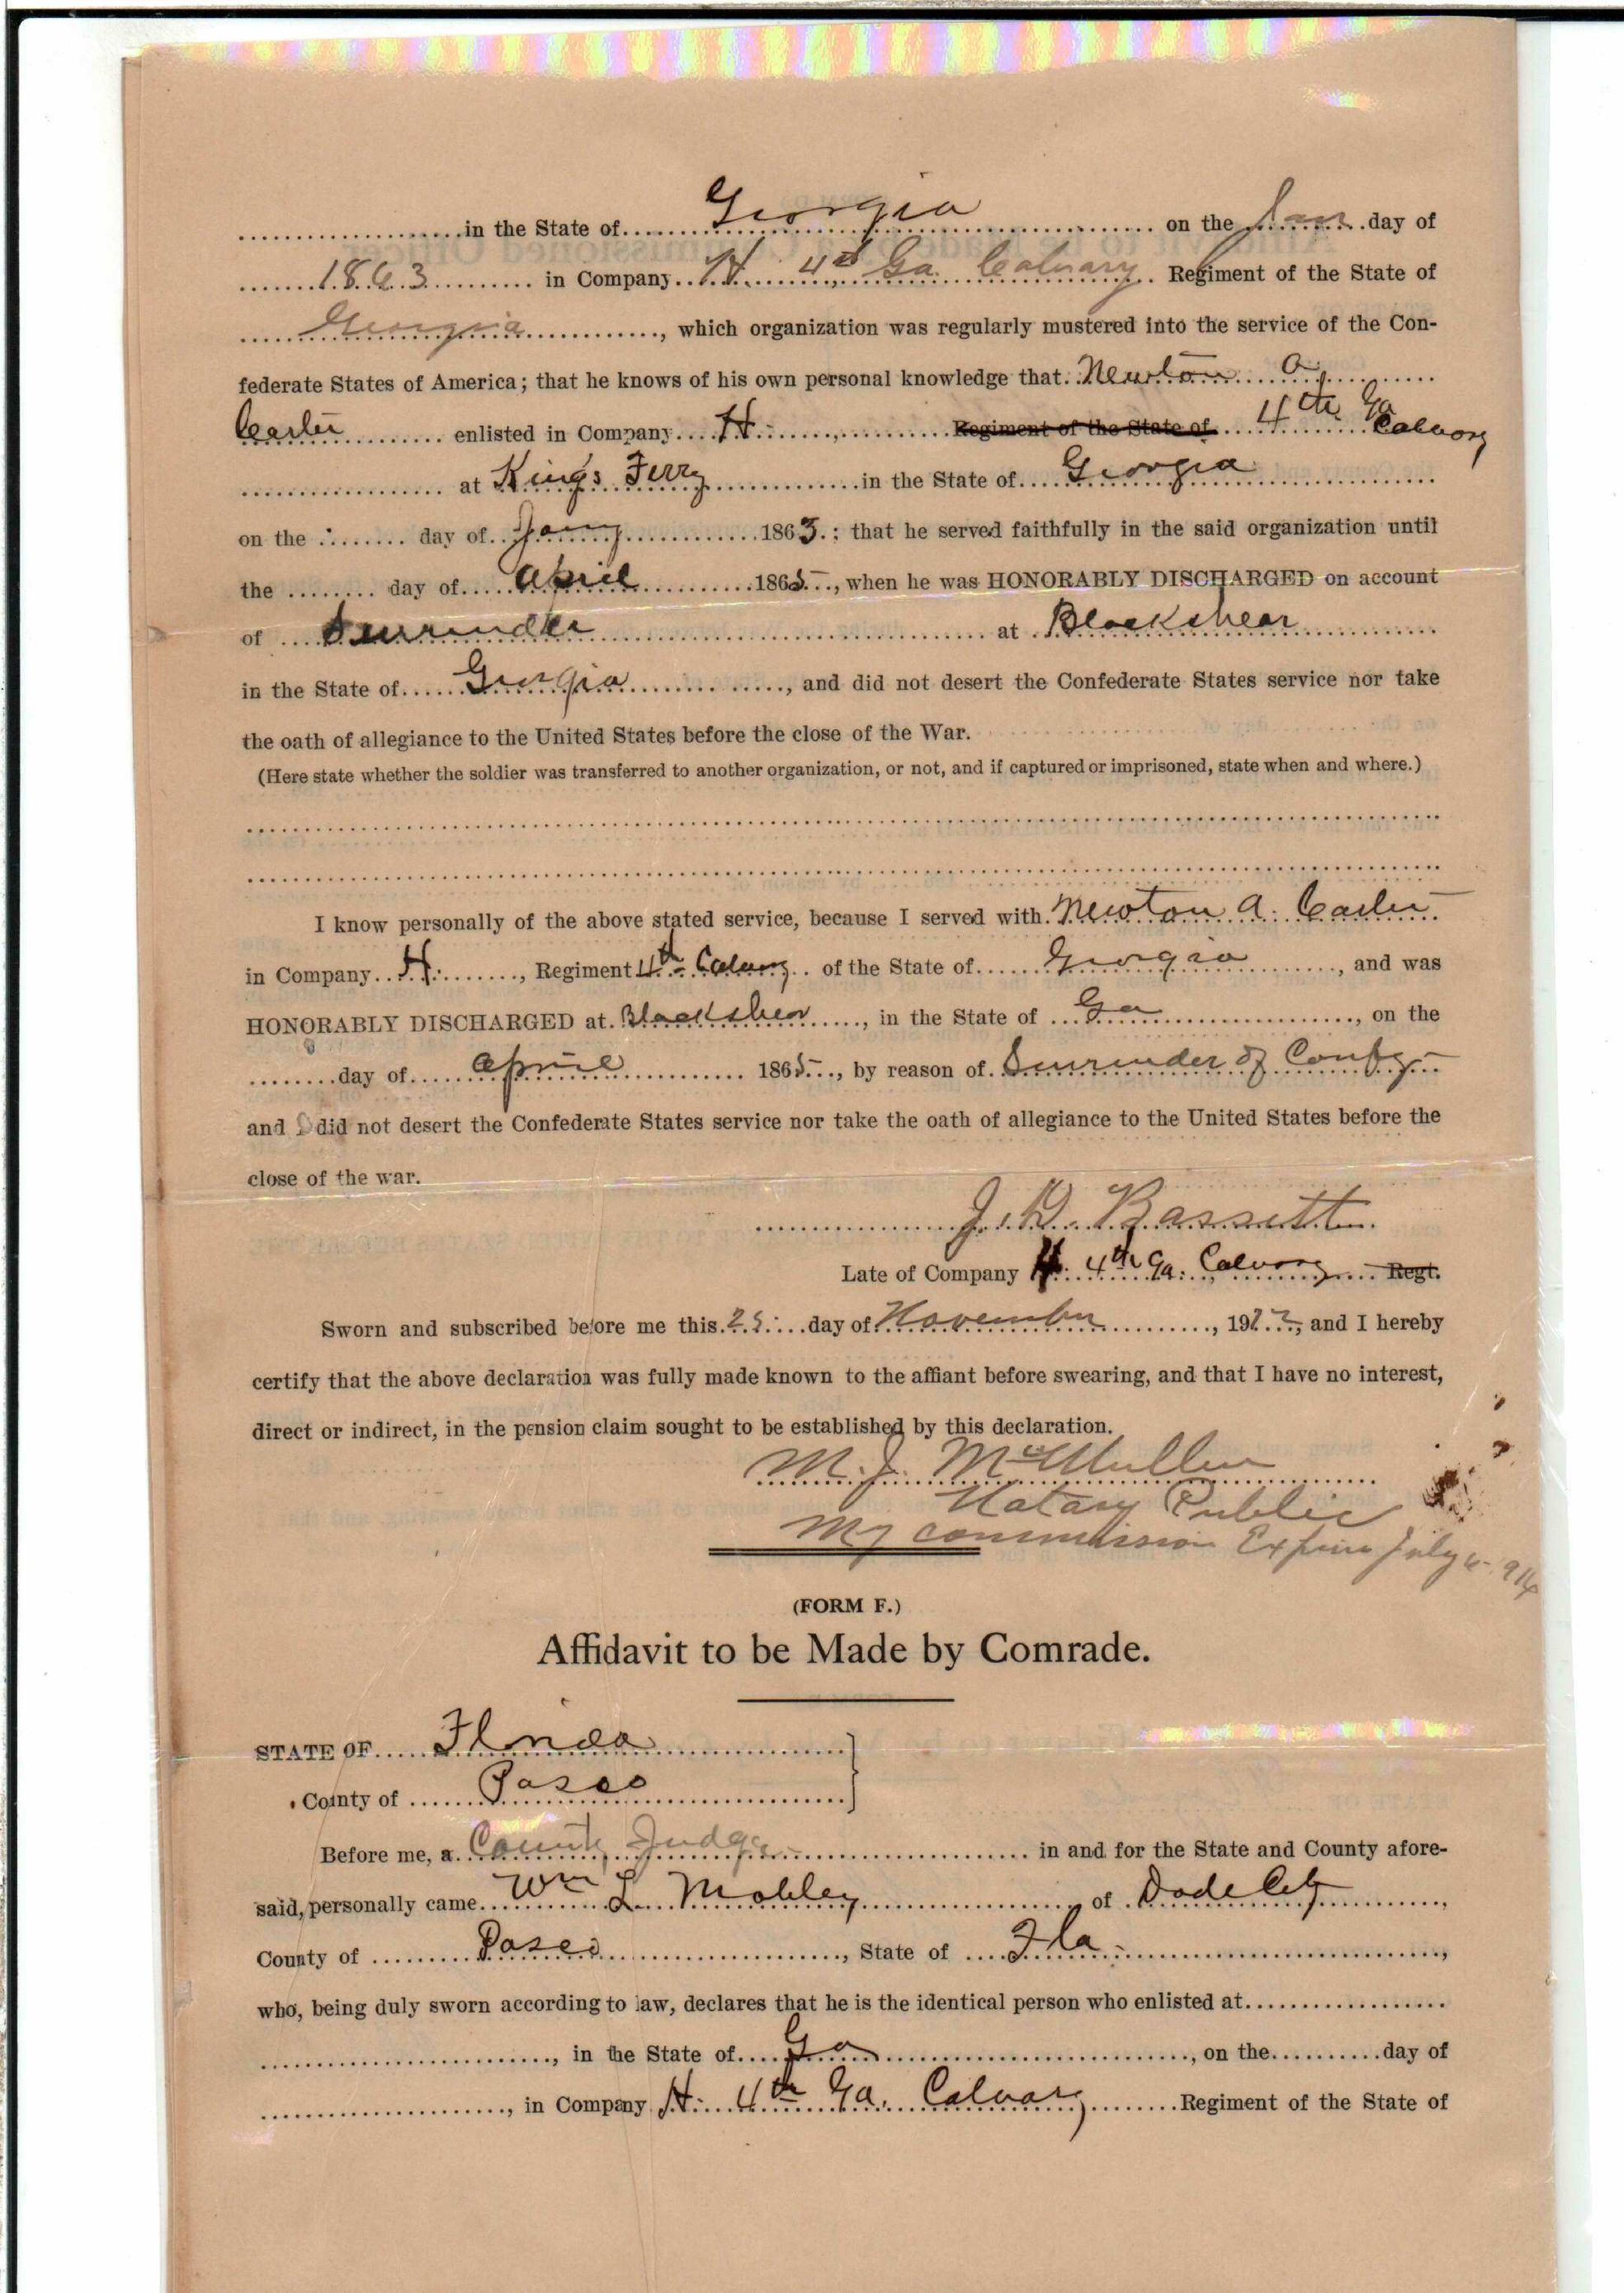 in the State of Georgia on the day of
1863 in Company H. 4th Ga. Calvary Regiment of the State of
Georgia, which organization was regularly mustered into the service of the Con-
federate States of America; that he knows of his own personal knowledge that Newton A.
Carter enlisted in Company H. Regiment of the State of 4th Ga Calvary
at Kings Ferry in the State of Georgia
on the day of Jany 1863.; that he served faithfully in the said organization until
the day of April 1865, when he was HONORABLY DISCHARGED on account
of Surrender at Blackshear
in the State of Georgia, and did not desert the Confederate States service nor take
the oath of allegiance to the United States before the close of the War.
(Here state whether the soldier was transferred to another organization, or not, and if captured or imprisoned, state when and where.)
I know personally of the above stated service, because I served with Newton A. Carter
in Company H., Regiment 4th Calvary of the State of Georgia, and was
HONORABLY DISCHARGED at Blackshear, in the State of Ga, on the
day of April 1865, by reason of Surrender of
and I did not desert the Confederate States service nor take the oath of allegiance to the United States before the
close of the war.
J. D. Bassett
Late of Company H. 4th Ga. Calvary Regt.
Sworn and subscribed before me this day of November, and I hereby
certify that the above declaration was fully made known to the affiant before swearing, and that I have no interest,
direct or indirect, in the pension claim sought to be established by this declaration.
M. J. McMullen
Notary Public
My commission Expires July
(FORM F.)
Affidavit to be Made by Comrade.
STATE OF Florida
County of Pasco
Before me, a County Judge in and for the State and County afore-
said, personally came Wm L. Mobley of Dade City,
County of Pasco, State of Fla.,
who, being duly sworn according to law, declares that he is the identical person who enlisted at
, in the State of Ga, on the day of
, in Company H. 4th Ga. Calvary Regiment of the State of